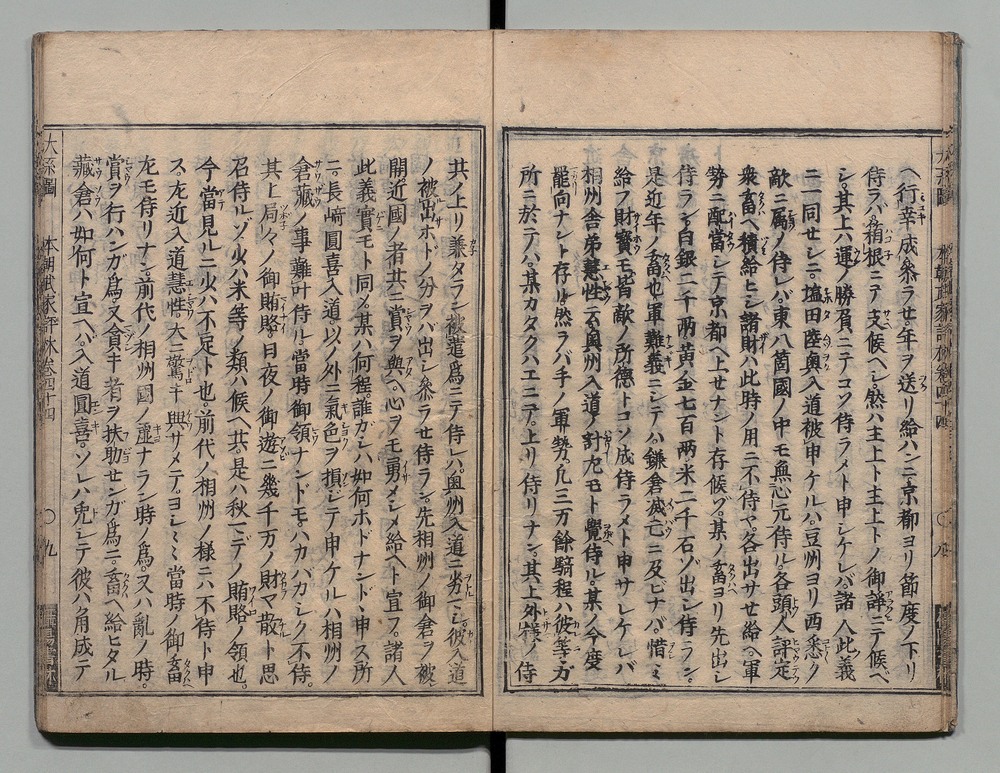 ヘ行幸成参ラせ年ヲ送リ給ハンニ京都ヨリ節度ノ下リ
侍ラバ箱根ニテ支候ヘシ然ハ主上ト主上トノ御諍ニテ候ヘ
シ其上ハ運ノ勝負ニテコソ侍ラメト申シケレバ諸人此義
ニ一同せシニ塩田陸奥入道被申ケルハ豆州ヨリ西悉ク
敵ニ属ノ侍レバ東八箇國ノ中モ無心元侍ル各頭人評定
衆畜ヘ積給ヒシ諸財ハ此時ノ用ニ不侍ヤ各出サせ給ヘ軍
勢ニ配當シテ京都ヘ上せナント存候ゾ某ノ畜ヨリ先出シ
侍ラン白銀二千両黄金七百両米二千石ゾ出シ侍ラン
是近年ノ畜也軍難義ニシテハ鎌倉滅亡ニ及ビナバ惜ミ
給フ財寳モ皆敵ノ所德トコソ成侍ラメト申サレケレバ
相州舎弟慧性云奥州入道ノ計尤モト覺侍ル某ノ今度
罷向ナント存リ然ラバ手ノ軍勢凡三万餘騎程ハ彼等ガ
所ニ於テハ某カタクハエニテ上リ侍リナン其上外様ノ侍
共ノ上リ兼タラン被遣為ニテ侍レハ奥州入道ニ劣ヘシ彼入道
ノ被出ホトノ分ヲバ出シ参ラせ侍ラン先相州ノ御倉ヲ被
開近國ノ者共ニ賞ヲ與ヘ心ヲモ勇メシメ給ヘト宣フ諸人
此義實モト同ズ某ハ何程誰ガシハ如何ホドナンド申ス所
ニ長崎圓喜入道以ノ外ニ氣色ヲ損シテ申ケルハ相州ノ
倉藏ノ事難叶侍ル當時御領ナンドモハカバカシク不侍
其上局々ノ御賄賂日夜ノ御遊ニ幾千万ノ財マ散ト思
召侍ルゾ火ハ米等ノ類ハ候ヘ共是ハ秋マデノ賄賂ノ領也
今當見ルニ火ハ不足ト也前代ノ相州ノ様ニハ不侍ト申
ス左近入道慧性大ニ驚キ興サメテヨシミミ當時ノ御畜
尤モ侍リナン前代ノ相州國ノ虚ナラン時ノ為又ハ亂ノ時
賞ヲ行ハンガ為又貪キ者ヲ扶助せンガ為ニ畜ヘ給ヒタル
藏倉ハ如何ト宣ヘハ入道圓喜ソレハ兜シテ彼ハ角成テ
本朝武家評林巻四十四
〇九